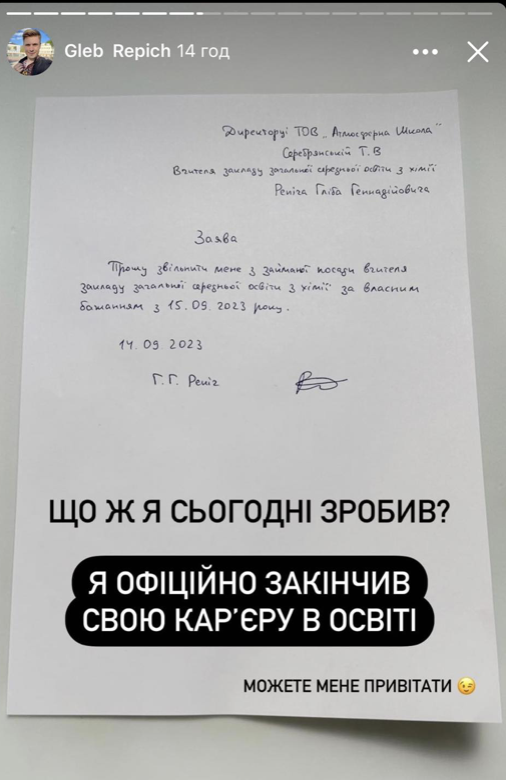 Gleb Repich 14 год
Директорці ТОВ „Атмосферна Школа"
Серебрянській Т.В
Вчителя закладу загальної середньої освіти з хімії
Репіча Гліба Геннадійовича
Заява
Прошу звільнити мене з займаної посади вчителя
закладу загальної середньої освіти з хімії за власним
бажанням з 15.09.2023 року.
14.09.2023
Г.Г. Репіч
ЩО Ж Я СЬОГОДНІ ЗРОБИВ?
Я ОФІЦІЙНО ЗАКІНЧИВ
СВОЮ КАР’ЄРУ В ОСВІТІ
МОЖЕТЕ МЕНЕ ПРИВІТАТИ 😉